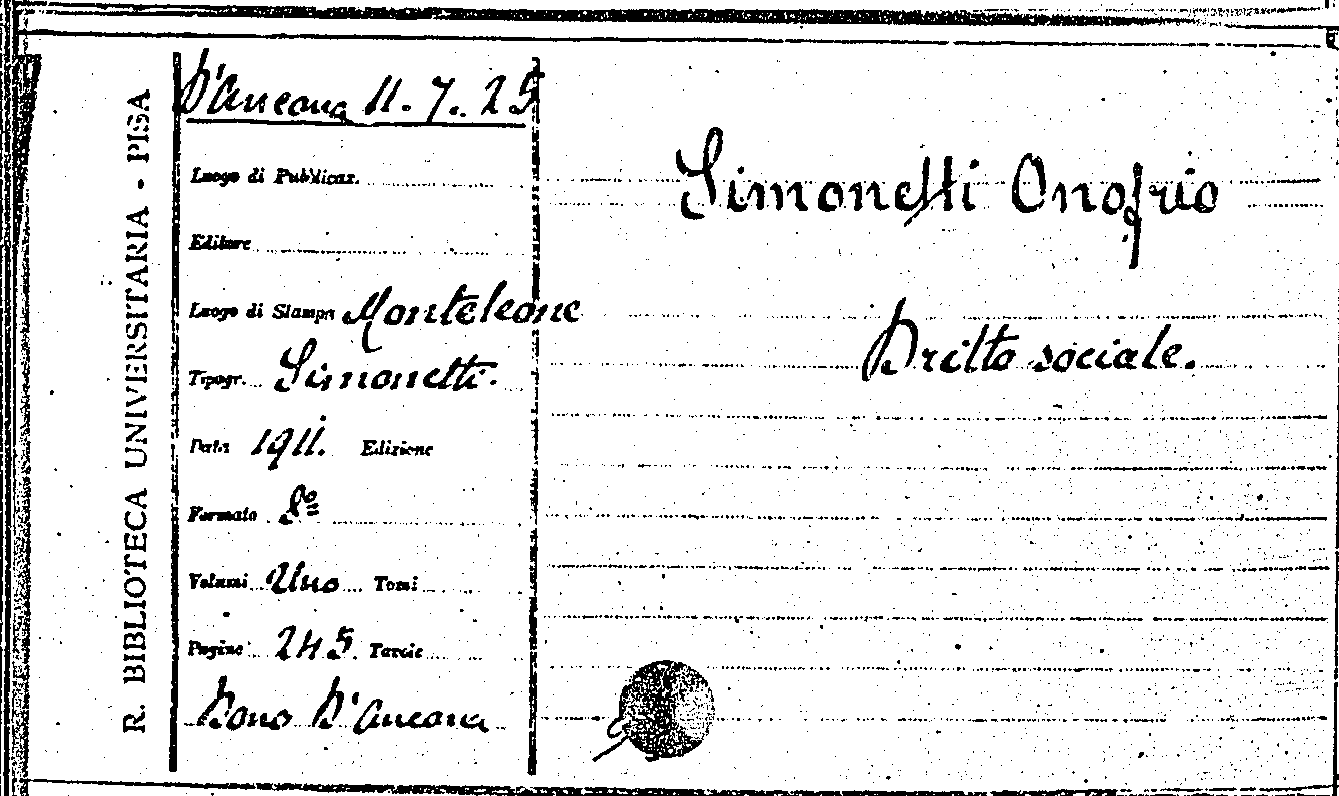 R. BIBLIOTECA UNIVERSITARIA - PISA
D'Ancona 11. 7. 25
Luogo di Pubblicaz.
Editore
Luogo di Stampa Monteleone
Tipogr. Simonetti.
Data 1911. Edizione
Formato 8º
Volumi Uno Tomi
Pagine 245 Tavole
Dono D'Ancona
Simonetti Onofrio
Dritto sociale.